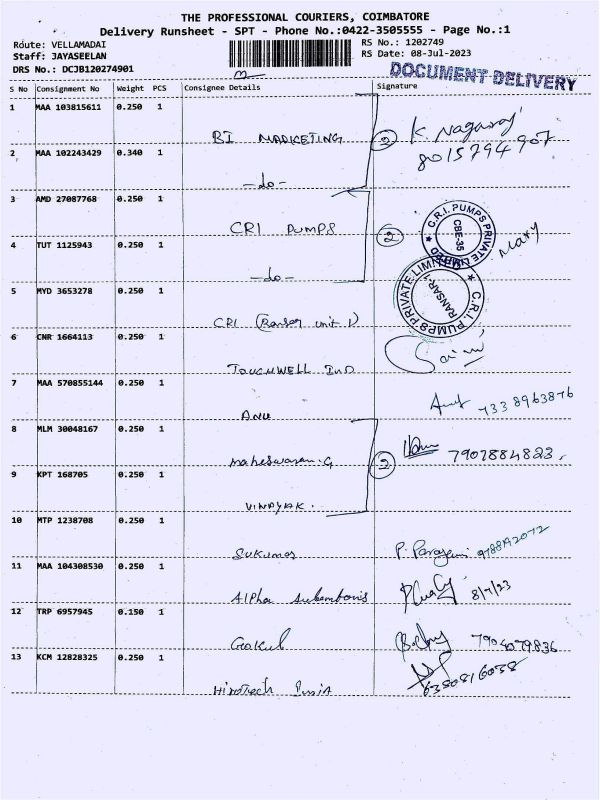 THE PROFESSIONAL COURIERS, COIMBATORE
Delivery Runsheet - SPT - Phone No.:0422-3505555 - Page No.:1
Route: VELLAMADAI
RS No.: 1202749
Staff: JAYASEELAN
RS Date: 08-Jul-2023
DRS No.: DCJB120274901
DOCUMENT DELIVERY
S No Consignment No Weight PCS Consignee Details Signature
1 MAA 103815611 0.250 1
BI MARKETING
2 K Nagaraj
8015794907
2 MAA 102243429 0.340 1
-do-
3 AMD 27087768 0.250 1
CRI PUMPS
2
C.R.I. PUMPS PRIVATE LIMITED
CBE-35
Mary
4 TUT 1125943 0.250 1
-do-
5 MYD 3653278 0.250 1
CRI (Ransar unit 1)
C.R.I. PUMPS PRIVATE LIMITED
RANSAR
6 CNR 1664113 0.250 1
TOUCHWELL IND
7 MAA 570855144 0.250 1
ANU
7338963876
8 MLM 30048167 0.250 1
Maheswaran.G
2 7907884823.
9 KPT 168705 0.250 1
VINAYAK.
10 MTP 1238708 0.250 1
Sukumar
11 MAA 104308530 0.250 1
Alpha
8/7/23
12 TRP 6957945 0.150 1
Gokul
7904079836
13 KCM 12828325 0.250 1
Hirotech India
6380816038